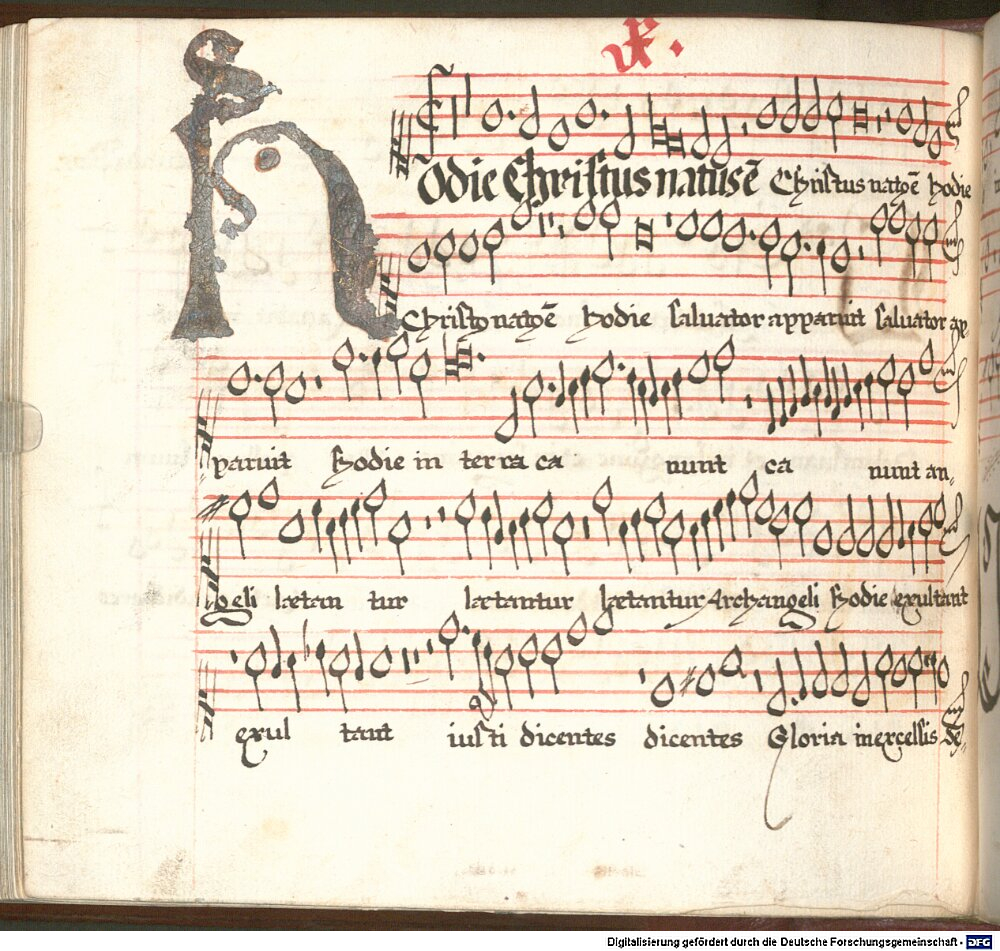 Hodie Christus natus ē Christus natꝰ ē hodie
Christꝰ natꝰ ē hodie saluator apparuit saluator ap-
paruit Hodie in terra ca nunt ca nunt an-
geli lætan tur lætantur lætantur Archangeli Hodie exultant
exul tant iusti dicentes dicentes Gloria in excelsis De-
Digitalisierung gefördert durch die Deutsche Forschungsgemeinschaft - DFG